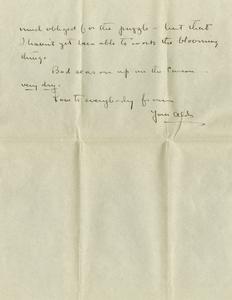 much obliged for the puzzle - but that
I haven't yet been able to work the blooming
thing.
Bad season up on the
very dry.
Love to everybody from
Your